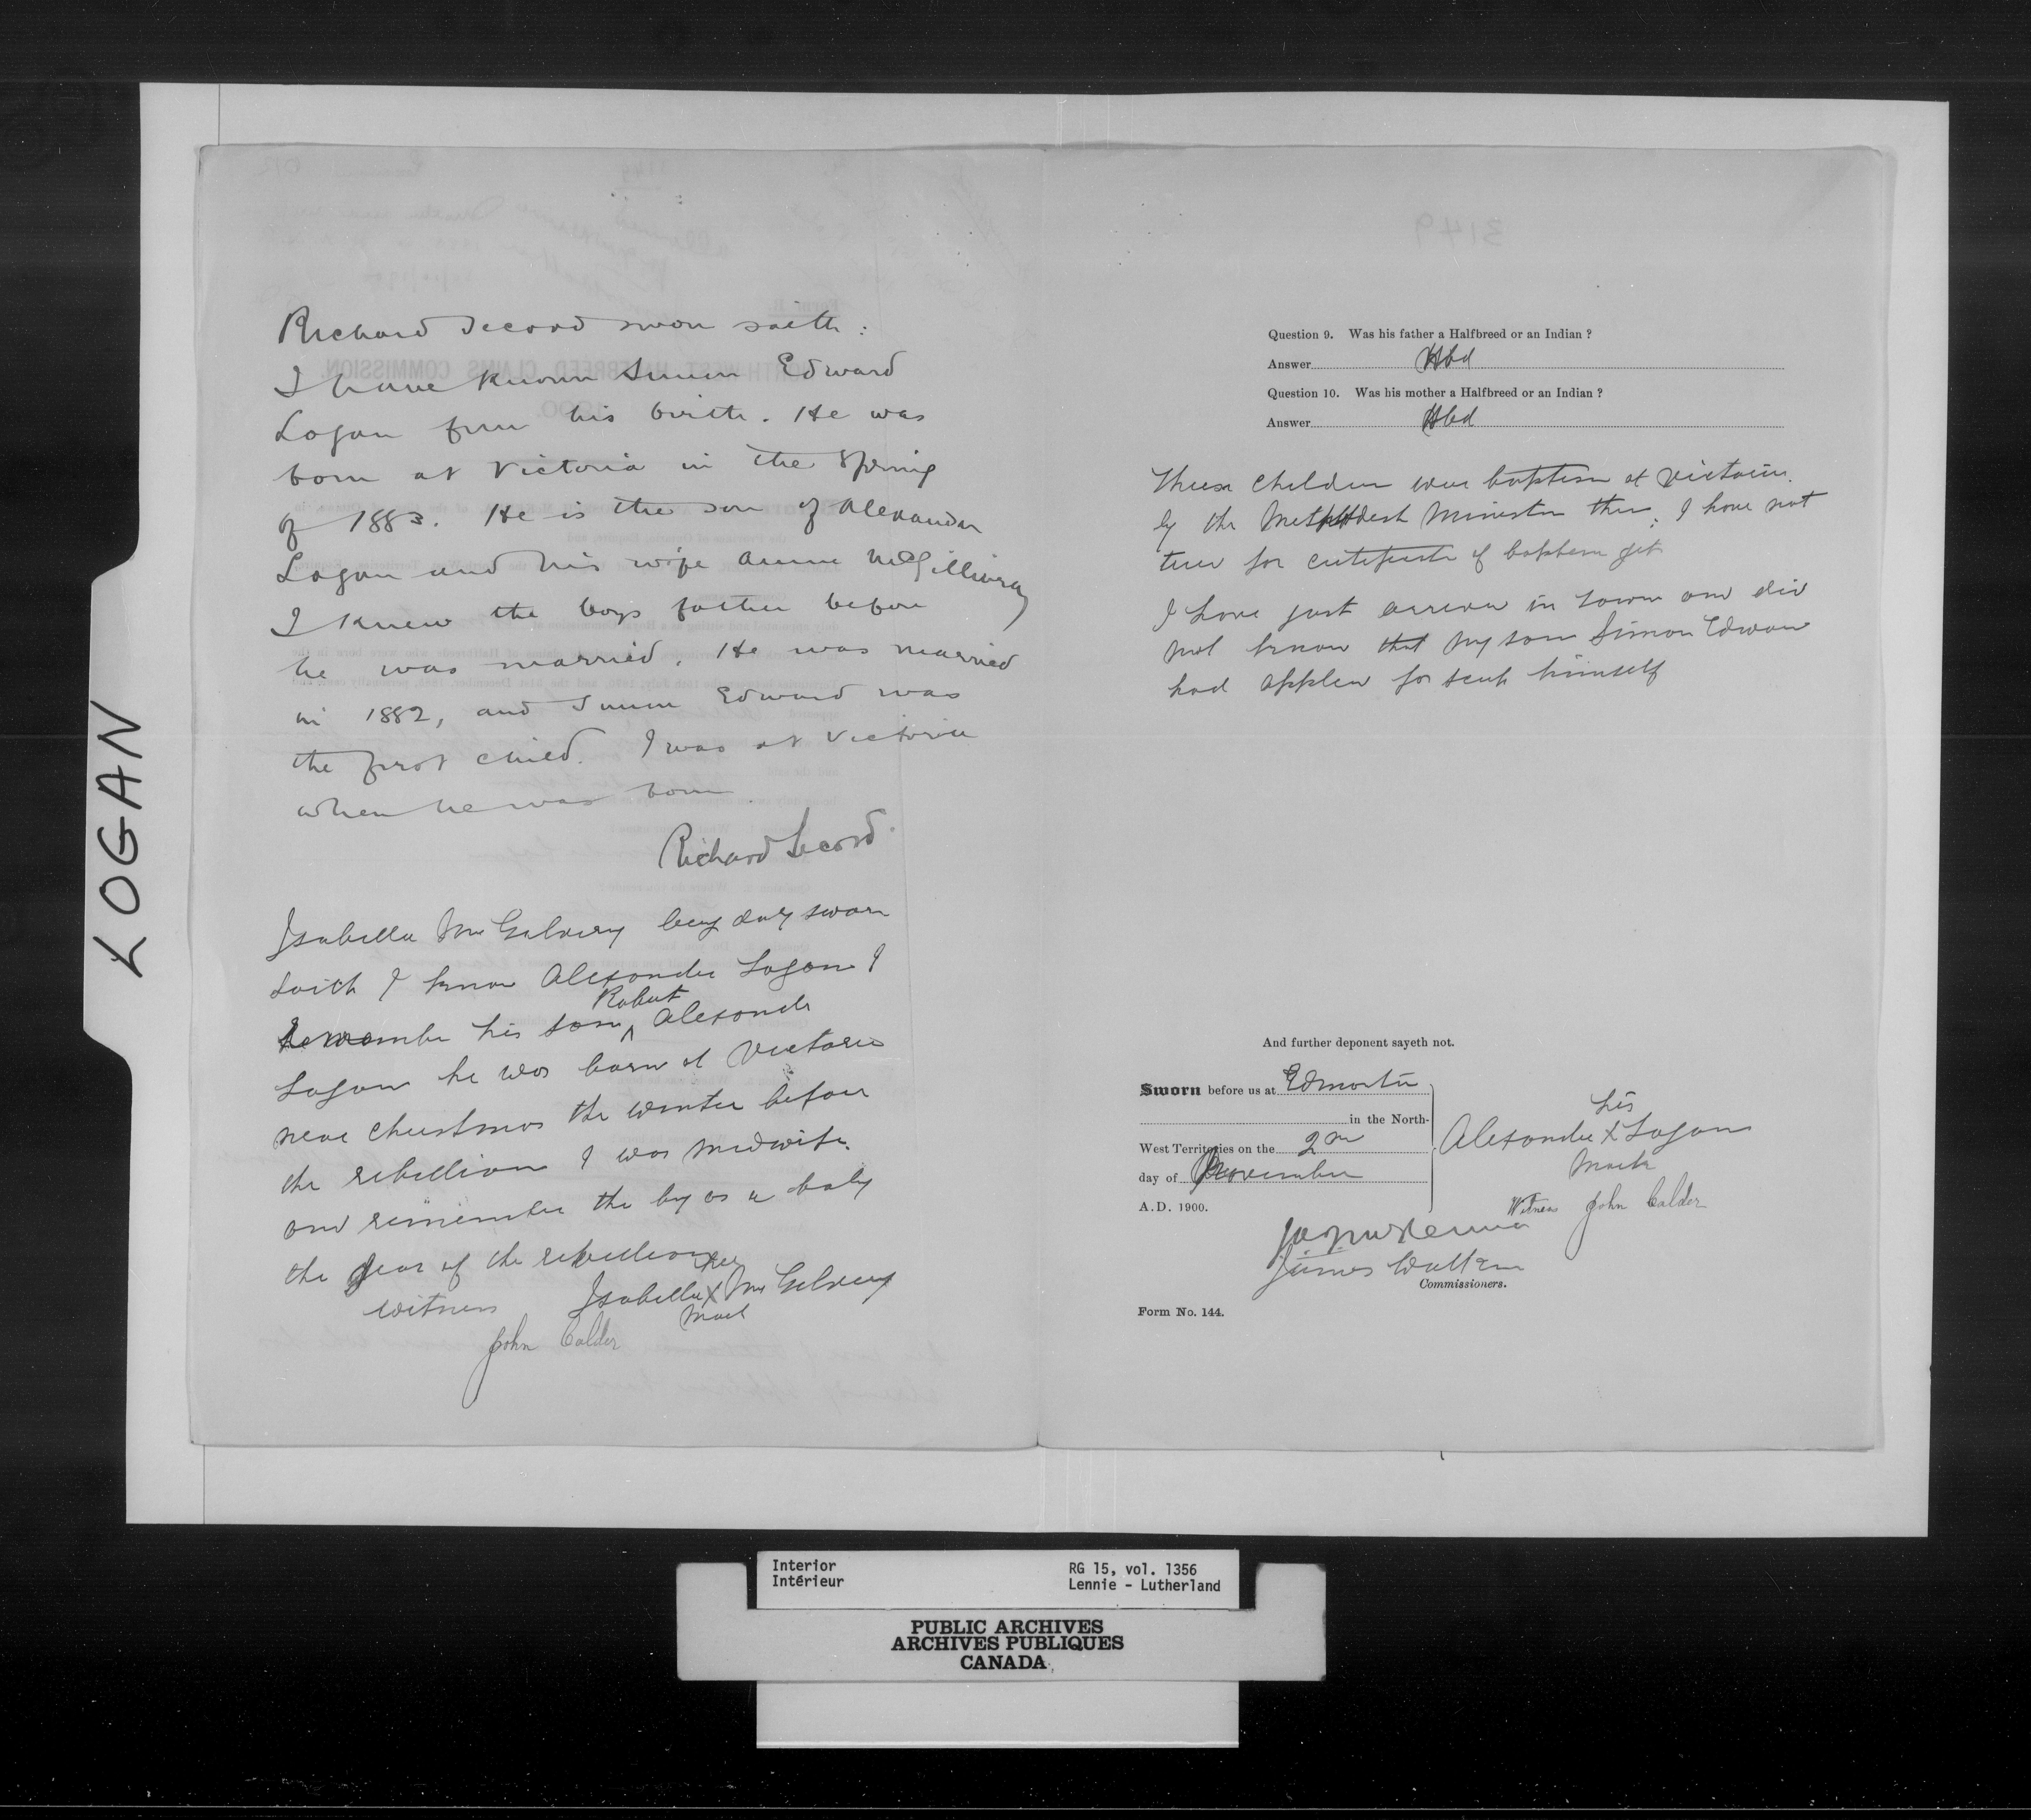 LOGAN
Richard Secord sworn saith:
I have known Simon Edward
Logan from his birth. He was
born at Victoria in the Spring
of 1883. He is the son of Alexander
Logan and his wife Annie McGillivray
I knew the boys father before
he was married. He was married
in 1882, and Simon Edward was
the first child. I was at Victoria
when he was born.
Richard Secord
Isabella McGilvery being duly sworn
saith I know Alexander Logan I
Remember his son Robert Alexander
Logan he was born at Victoria
near Christmas the winter before
the rebellion I was midwife.
and remember the boy as a baby
the year of the rebellion
her
Isabella X McGilvery
mark
Witness
John Calder
3149
Question 9. Was his father a Halfbreed or an Indian ?
Answer Hbd
Question 10. Was his mother a Halfbreed or an Indian ?
Answer Hbd
These children were baptism at Victoria.
by the Methodist Minister there. I have not
time for certificate of baptism yet
I have just arrived in town and did
not know that my son Simon Edward
had applied for scrip himself
And further deponent sayeth not.
Sworn before us at Edmonton
in the North-
West Territories on the 2nd
day of November
A.D. 1900.
his
Alexander X Logan
Mark
Witness John Calder
James Walker
Commissioners.
Form No. 144.
Interior
Intérieur
RG 15, vol. 1356
Lennie - Lutherland
PUBLIC ARCHIVES
ARCHIVES PUBLIQUES
CANADA